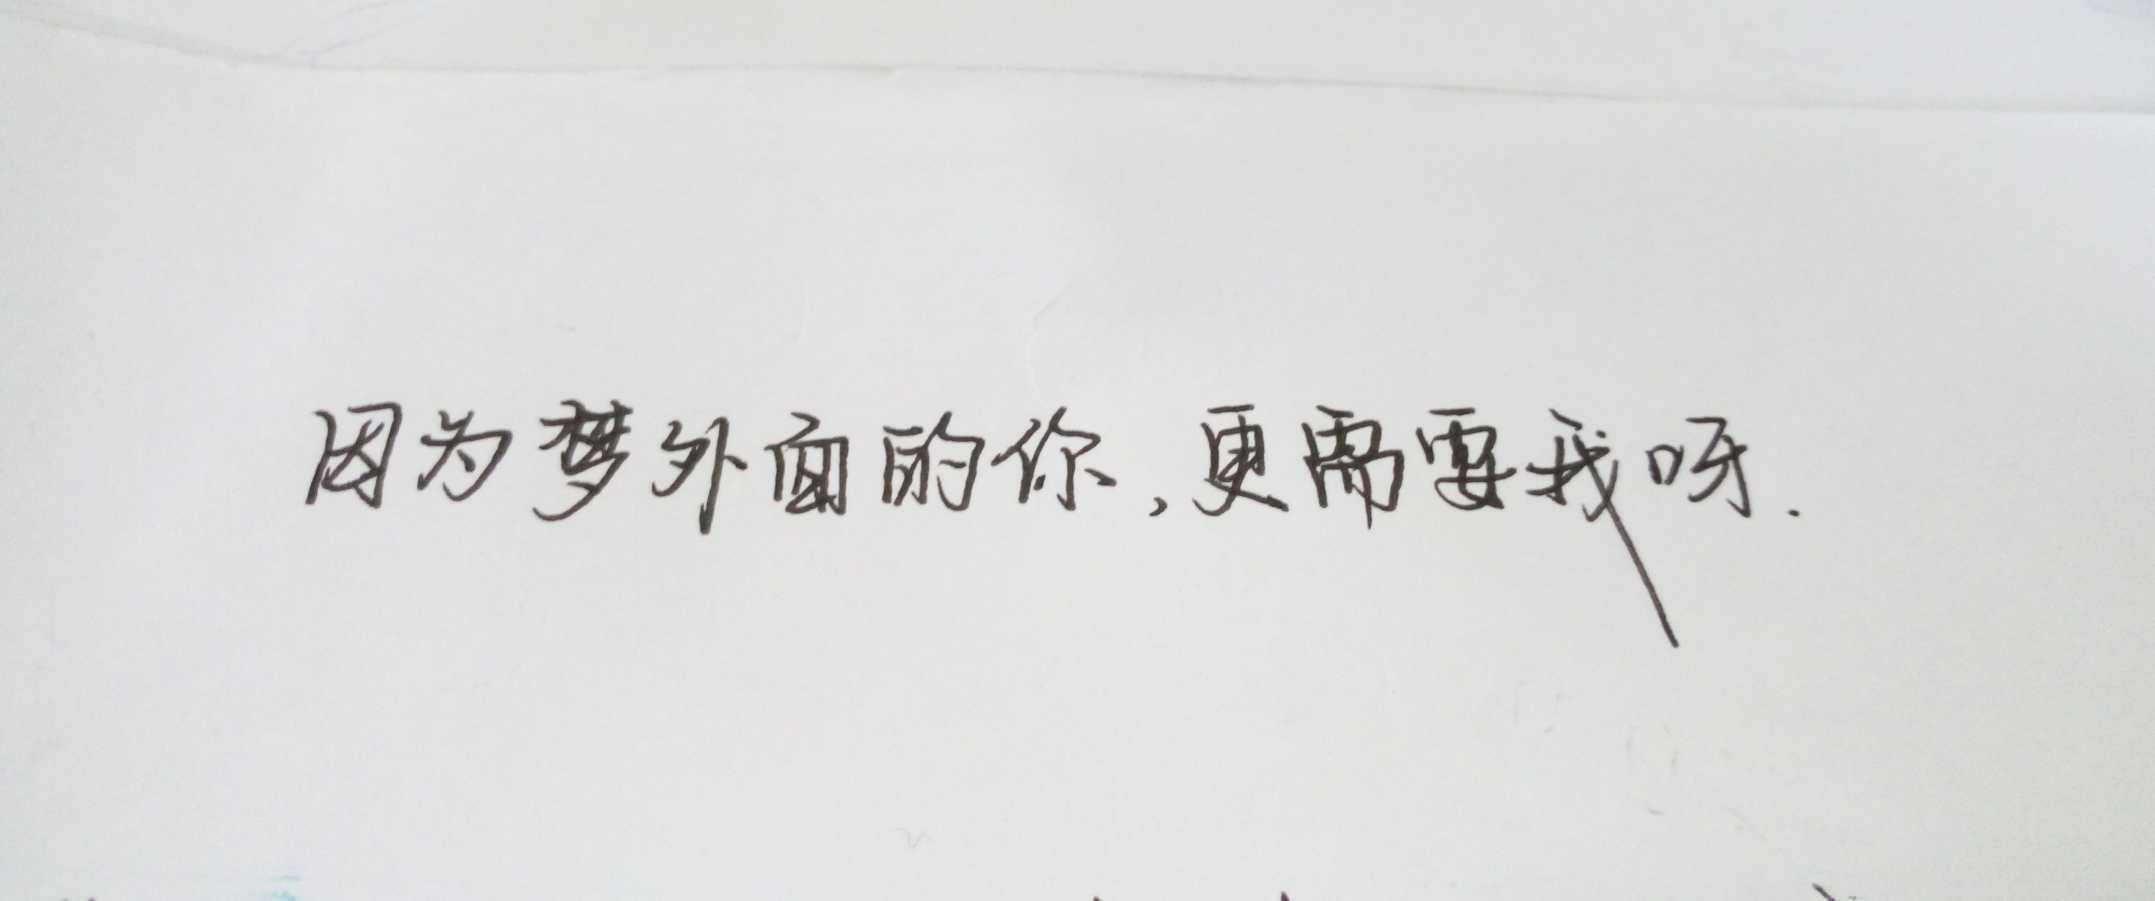 因为梦外面的你,更需要我呀.